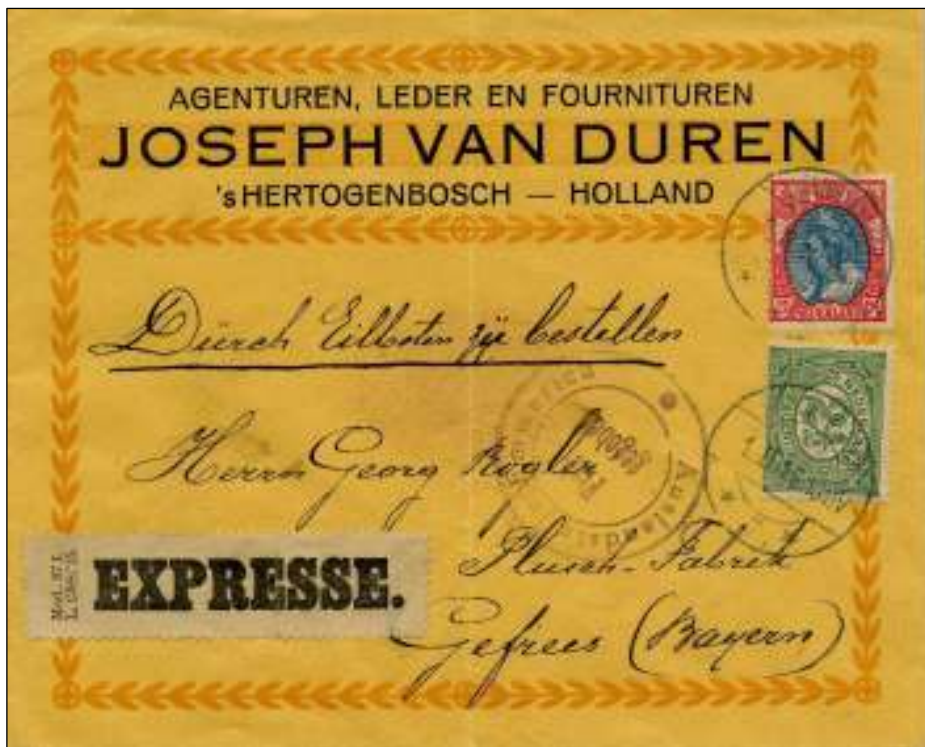 AGENTUREN, LEDER EN FOURNITUREN
JOSEPH VAN DUREN
'sHERTOGENBOSCH — HOLLAND
Dürch Eilboten zü bestellen
Herrn Georg Rogler
Plusch-Fabrik
EXPRESSE.
Gefrees (Bayern)